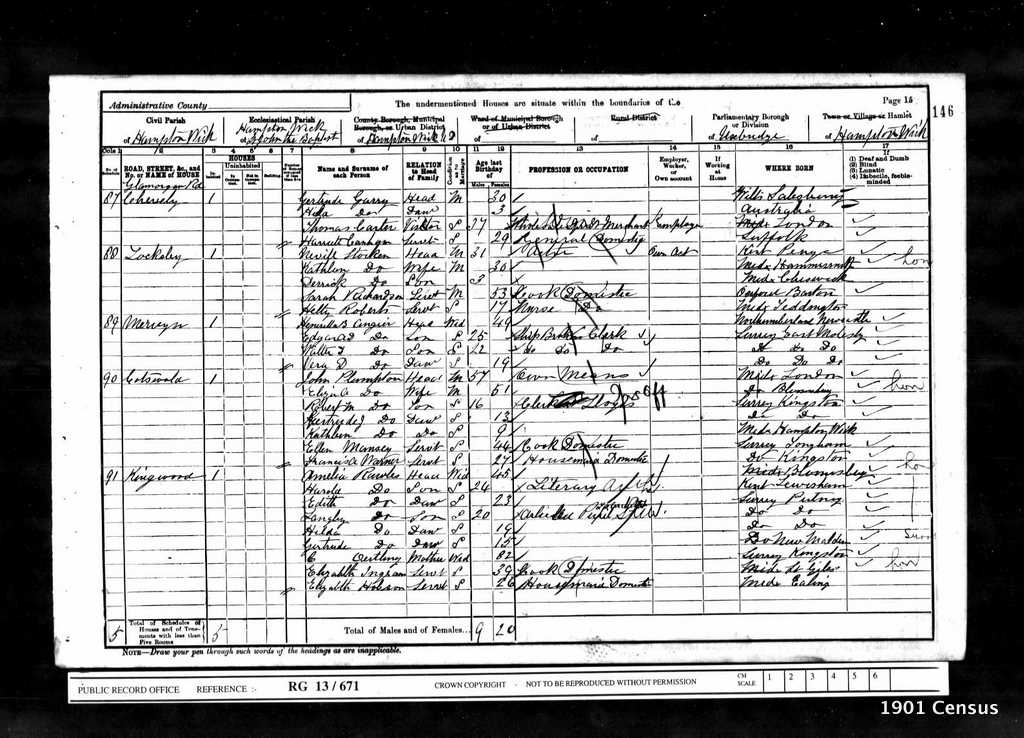 Administrative County
The undermentioned Houses are situate within the boundaries of the
Page 15
146
Civil Parish
of Hampton Wick
Ecclesiastical Parish
of Hampton Wick St John the Baptist
County Borough, Municipal Borough, or Urban District
of Hampton Wick U D
Ward of Municipal Borough or of Urban District
of
Rural District
of
Parliamentary Borough or Division
of Uxbridge
Town or Village or Hamlet
of Hampton Wick
Cols 1 2 3 4 5 6 7 8 9 10 11 12 13 14 15 16 17
ROAD, STREET, &c., and No. or NAME of HOUSE
HOUSES
Uninhabited
Name and Surname of each Person
RELATION to Head of Family
Condition as to Marriage
Age last Birthday of
Males Females
PROFESSION OR OCCUPATION
Employer, Worker, or Own account
If Working at Home
WHERE BORN
If
(1) Deaf and Dumb
(2) Blind
(3) Lunatic
(4) Imbecile, feeble-minded
Glamorgan Rd
87 1 Gertrude Garry Head M 30 Wilts Salisbury
Do Daur 3 Australia
Thomas Carter Visitor S 37 Merchant Employer Midx London
Harriett Serot S 29 General Domestic Suffolk
88 Locksley 1 Nevill Stocken Head M 31 Artist Own Act Kent Penge
Kathleen Do Wife M 30 Midx Hammersmith
Derrick Do Son 3 Midx Chiswick
Sarah Richardson Serot M 53 Cook Domestic Barton
Hetty Roberts Serot S 17 Nurse Do Midx Teddington
89 Mervyn 1 Head Wid 49 Northumberland Newcastle
Edgar Do Son S 25 Ship Brokers Clark Surrey East Molesey
Walter Do Son S 22 Do Do Do Do Do
Vera D Do Daur S 19 Do Do Do
90 Cotswold 1 John Plumpton Head M 57 Own Means Midx London
Eliza Do Wife M 51 Do
Robert M Do Son S 16 Clerk Lloyds Surrey Kingston
Gertrude J Do Daur S 13 Do Do
Kathleen Do Do S 9 Midx Hampton Wick
Ellen Mansey Serot S 44 Cook Domestic Surrey
Francisca Warner Serot S 27 Housemaid Domestic Do Kingston
91 Kingwood 1 Amelia Rawles Head Wid 45 Midx Bloomsbury
Harold Do Son S 24 Literary Kent Lewisham
Edith Do Daur S 23 Surrey Putney
Langley Do Son S 20 Pupil Do Do
Hilda Do Daur S 19 Do Do
Gertrude Do Daur S 15 Do New Malden
Mother Wid 82 Surrey Kingston
Elizabeth Ingham Serot S 39 Cook Domestic Midx St Giles
Elizabeth Hobson Serot S 26 Housemaid Domestic Midx Ealing
5 Total of Schedules of Houses and of Tenements with less than Five Rooms 5 Total of Males and of Females... 9 20
NOTE—Draw your pen through such words of the headings as are inapplicable.
PUBLIC RECORD OFFICE REFERENCE :- RG 13/671 CROWN COPYRIGHT - NOT TO BE REPRODUCED WITHOUT PERMISSION CM SCALE 1 2 3 4 5 6
1901 Census